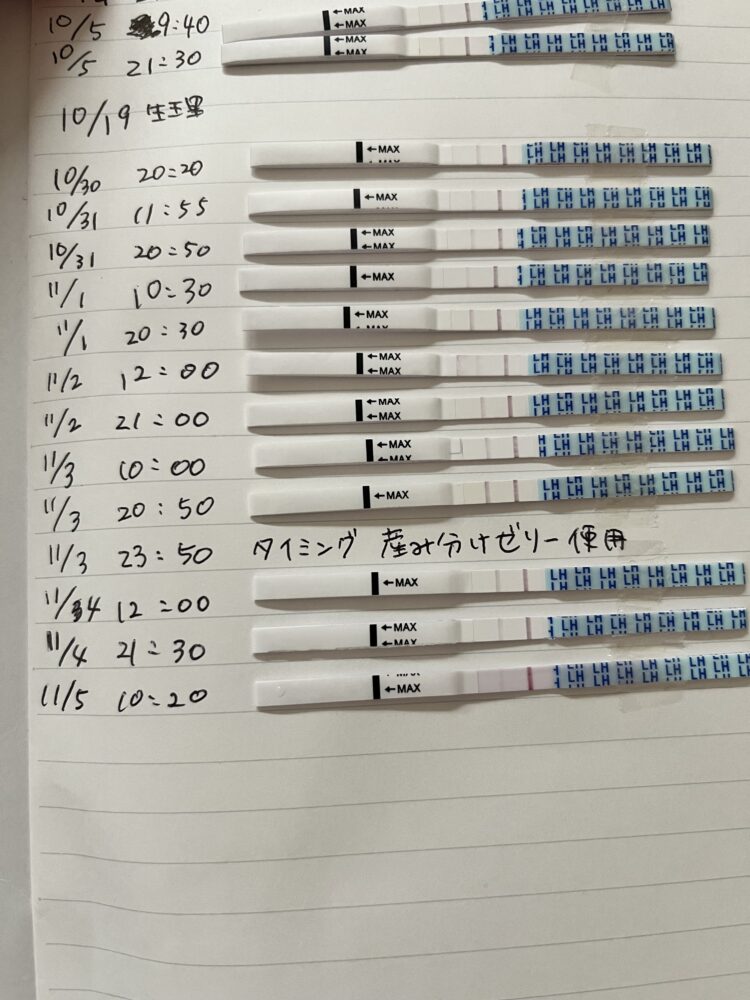 10/5 9:40 ←MAX LH LH LH LH LH LH LH
10/5 21:30 ←MAX ←MAX LH LH LH LH LH LH LH
10/19 生理
10/30 20:20 ←MAX LH LH LH LH LH LH LH
10/31 11:55 ←MAX LH LH LH LH LH LH LH
10/31 20:50 ←MAX ←MAX LH LH LH LH LH LH LH
11/1 10:30 ←MAX LH LH LH LH LH LH LH
11/1 20:30 ←MAX LH LH LH LH LH LH LH
11/2 12:00 ←MAX ←MAX LH LH LH LH LH LH LH
11/2 21:00 ←MAX ←MAX LH LH LH LH LH LH LH
11/3 10:00 ←MAX ←MAX LH LH LH LH LH LH LH
11/3 20:50 ←MAX LH LH LH LH LH LH LH
11/3 23:50 タイミング 産み分けゼリー使用
11/4 12:00 ←MAX LH LH LH LH LH LH LH
11/4 21:30 ←MAX ←MAX LH LH LH LH LH LH LH
11/5 10:20 ←MAX LH LH LH LH LH LH LH